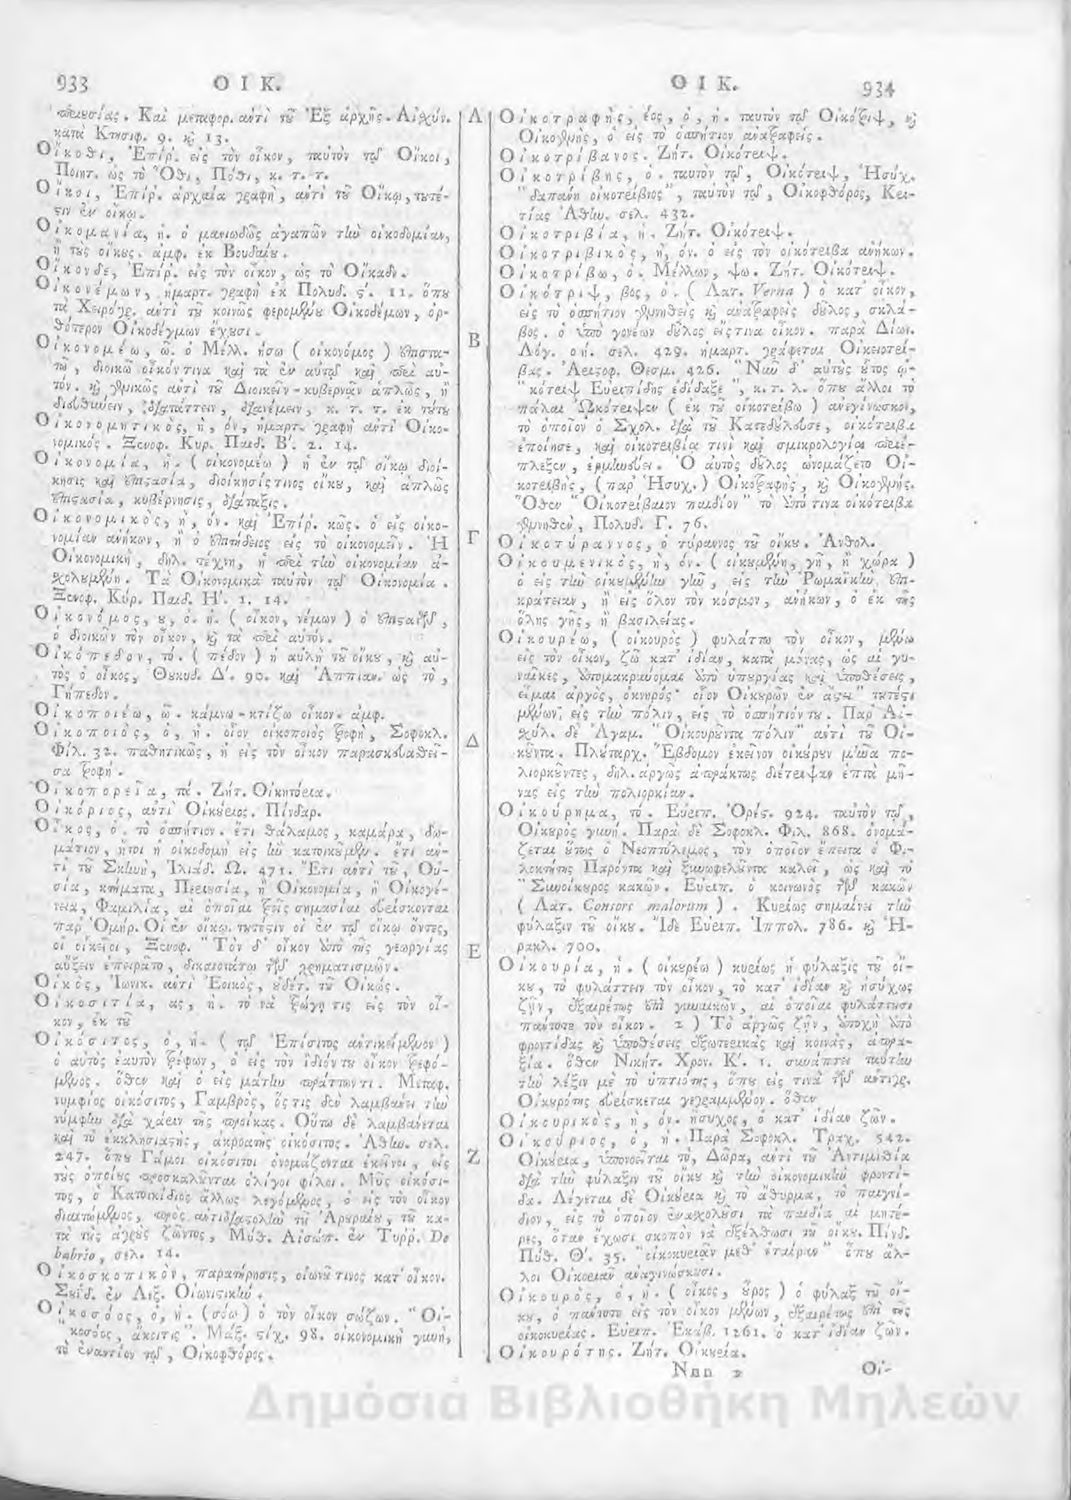 933 ΟΙΚ.
περιουσίας. Καὶ μεταφορ. αντὶ τοῦ Ἐξ ἀρχῆς. Αἰσχίν.
κατὰ Κτησιφ. 9. καὶ 13.
Οἴκοθι, Ἐπίρ. εἰς τὸν οἶκον, ταυτὸν τῷ Οἴκοι,
Ποιητ. ὡς τὸ Ὅθι, Πόθι, κ. τ. τ.
Οἴκοι, Ἐπίρ. ἀρχαία γραφὴ, αντὶ τοῦ Οἴκῳ, τουτέ-
στιν ἐν οἴκῳ.
Οἰκομανία, ἡ. ὁ μανιωδῶς ἀγαπῶν τὴν οἰκοδομίαν,
ἢ τοὺς οἴκους. ἀμφ. ἐκ Βουδαίου.
Οἴκονδε, Ἐπίρ. εἰς τὸν οἶκον, ὡς τὸ Οἴκαδε.
Οἰκονέμων, ἡμαρτ. γραφὴ ἐκ Πολυδ. ς'. 11. ὅπου
τὰ Χειρόγρ. αντὶ τοῦ κοινῶς φερομένου Οἰκοδέμων, ὀρ-
θότερον Οἰκοδέγμων ἔχουσι.
Οἰκονομέω, ῶ. ὁ Μέλλ. ήσω ( οἰκονόμος ) ἐπιστα-
τῶ, διοικῶ οἶκόν τινα καὶ τὰ ἐν αυτῷ καὶ περὶ αὐ-
τόν. καὶ γενικῶς αντὶ τοῦ Διοικεῖν - κυβερνᾶν ἁπλῶς, ἢ
διευθύνειν, διατάττειν, διανέμειν, κ. τ. τ. ἐκ τούτου
Οἰκονομητικὸς, ὴ, ὸν, ἡμαρτ. γραφὴ αντὶ Οἰκο-
νομικός. Ξενοφ. Κυρ. Παιδ. Β'. 2. 14.
Οἰκονομία, ἡ. ( οἰκονομέω ) ἡ ἐν τῷ οἴκῳ διοί-
κησις καὶ ἐπιστασία, διοίκησίς τινος οἴκου, καὶ ἁπλῶς
ἐπιστασία, κυβέρνησις, διάταξις.
Οἰκονομικὸς, ὴ, ὸν. καὶ Ἐπίρ. κῶς. ὁ εἰς οἰκο-
νομίαν ανήκων, ἢ ὁ ἐπιτήδειος εἰς τὸ οἰκονομεῖν. Ἡ
Οἰκονομικὴ, δηλ. τέχνη, ἡ περὶ τὴν οἰκονομίαν ἀ-
σχολεμένη. Τὰ Οἰκονομικὰ ταυτὸν τῷ Οἰκονομία.
Ξενοφ. Κύρ. Παιδ. Η'. 1. 14.
Οἰκονόμος, ου, ὁ. ἡ. ( οἶκον, νέμων ) ὁ ἐπιστατῶν,
ὁ διοικῶν τὸν οἶκον, καὶ τὰ περὶ αὐτόν.
Οἰκόπεδον, τό. ( πέδον ) ἡ αὐλὴ τοῦ οἴκου, καὶ αὐ-
τὸς ὁ οἶκος, Θουκυδ. Δ'. 90. καὶ Ἀππιαν. ὡς τὸ,
Γήπεδον.
Οἰκοποιέω, ῶ. κάμνω - κτίζω οἶκον. ἀμφ.
Οἰκοποιὸς, ὁ, ἡ. οἷον οἰκοποιὸς τροφὴ, Σοφοκλ.
Φιλ. 32. παθητικῶς, ἡ εἰς τὸν οἶκον παρασκευασθεῖ-
σα τροφή.
Οἰκοπορεῖα, τά. Ζήτ. Οἰκητόρεια.
Οἰκόριος, αντὶ Οἰκούριος. Πίνδαρ.
Οἶκος, ὁ. τὸ ὁσπήτιον. ἔτι θάλαμος, καμάρα, δω-
μάτιον, ἤτοι ἡ οἰκοδομὴ εἰς ἣν κατοικοῦμεν. ἔτι αν-
τὶ τοῦ Σκηνὴ, Ἰλιάδ. Ω. 471. Ἔτι αντὶ τοῦ, Οὐ-
σία, κτήματα, Περιουσία, ἢ Οἰκονομία, ἢ Οἰκογέ-
νεια, Φαμιλία, αἱ ὁποῖαι τρεῖς σημασίαι εὑρίσκονται
παρ' Ὁμήρ. Οἱ ἐν οἴκῳ. τουτέστιν οἱ ἐν τῷ οἴκῳ ὄντες,
οἱ οἰκεῖοι, Ξενοφ. " Τὸν δ' οἶκον ἀπὸ τῆς γεωργίας
αὔξειν ἐπειρᾶτο, δικαιοτάτῳ τῶν χρηματισμῶν.
Οἰκὸς, Ἰωνικ. αντὶ Ἐοικὸς, οὐδέτ. τοῦ Οἰκώς.
Οἰκοσιτία, ας, ἡ. τὸ νὰ τρώγῃ τις εἰς τὸν οἶ-
κον, ἐκ τοῦ
Οἰκόσιτος, ὁ, ἡ. ( τῷ Ἐπίσιτος αντικείμενον )
ὁ αὐτὸς ἑαυτὸν τρέφων, ὁ εἰς τὸν ἴδιόν του οἶκον τρεφό-
μενος. ὅθεν καὶ ὁ εἰς μάτην πράττων τι. Μεταφ.
νυμφίος οἰκόσιτος, Γαμβρὸς, ὅςτις δὲν λαμβάνει τὴν
νύμφην διὰ χάριν τῆς προίκας. Οὕτω δὲ λαμβάνεται
καὶ τὸ ἐκκλησιαστὴς, ἀκροατὴς οἰκόσιτος. Ἀθην. σελ.
247. ὅπου Γάμοι οἰκόσιτοι ὀνομάζονται ἐκεῖνοι, εἰς
τοὺς ὁποίους προσκαλοῦνται ὀλίγοι φίλοι. Μῦς οἰκόσι-
τος, ὁ Κατοικίδιος ἄλλως λεγόμενος, ὁ εἰς τὸν οἶκον
διαιτώμενος, πρὸς αντιδιαστολὴν τοῦ Ἀρουραίου, τοῦ κα-
τὰ τοὺς ἀγροὺς ζῶντος, Μύθ. Αἰσώπ. ἐν Τυρρ. De
babrio, σελ. 14.
Οἰκοσκοπικὸν, παρατήρησις, οἰωνά τινος κατ' οἶκον.
Σουΐδ. ἐν Λεξ. Οἰωνιστικήν.
Οἰκοσόος, ὁ, ἡ. (σόω) ὁ τὸν οἶκον σώζων. " Οἰ-
κοσόος, ἄκοιτις ". Μάξ. στίχ. 98. οἰκονομικὴ γυνὴ,
τὸ ἐναντίον τῷ, Οἰκοφθόρος.
Α
Β
Γ
Δ
Ε
Ζ
ΟΙΚ. 934
Οἰκοτραφὴς, έος, ὁ, ἡ. ταυτὸν τῷ Οἰκότριψ, καὶ
Οἰκογενὴς, ὁ εἰς τὸ ὁσπήτιον ανατραφείς.
Οἰκοτρίβανος. Ζήτ. Οἰκότριψ.
Οἰκοτρίβης, ὁ. ταυτὸν τῷ, Οἰκότριψ, Ἡσύχ.
" δαπάνη οἰκοτρίβιος ", ταυτὸν τῷ, Οἰκοφθόρος, Κρι-
τίας Ἀθην. σελ. 432.
Οἰκοτριβία, ἡ. Ζήτ. Οἰκότριψ.
Οἰκοτριβικὸς, ὴ, ὸν. ὁ εἰς τὸν οἰκότριβα ανήκων.
Οἰκοτρίβω, ὁ. Μέλλων, ψω. Ζήτ. Οἰκότριψ.
Οἰκότριψ, βος, ὁ. ( Λατ. Verna ) ὁ κατ' οἶκον,
εἰς τὸ ὁσπήτιον γεννηθεὶς καὶ ανατραφεὶς δοῦλος, σκλά-
βος. ὁ ὑπὸ γονέων δοῦλος εἴς τινα οἶκον. παρὰ Δίων.
Λόγ. οη. σελ. 429. ἡμαρτ. γράφεται Οἰκειοτρί-
βας. Ἀριστοφ. Θεσμ. 426. " Νῦν δ' αὐτοὺς οὗτος ᾡ-
" κότριψ Εὐριπίδης ἐδίδαξε ", κ. τ. λ. ὅπου ἄλλοι τὸ
πάλαι Ὠκότριψεν ( ἐκ τοῦ οἰκοτρίβω ) ανεγίνωσκον,
τὸ ὁποῖον ὁ Σχολ. διὰ τοῦ Κατεδούλωσε, οἰκότριβα
ἐποίησε, καὶ οἰκοτριβίᾳ τινὶ καὶ σμικρολογίᾳ περιέ-
πλεξεν, ἑρμηνεύει. Ὁ αὐτὸς δοῦλος ὠνομάζετο Οἰ-
κοτριβὴς, (παρ' Ἡσυχ.) Οἰκοτραφὴς, καὶ Οἰκογενής.
Ὅθεν " Οἰκοτρίβαιον παιδίον " τὸ ἀπό τινα οἰκότριβα
γεννηθὲν, Πολυδ. Γ. 76.
Οἰκοτύραννος, ὁ τύραννος τοῦ οἴκου. Ἀνθολ.
Οἰκουμενικὸς, ὴ, ὸν. ( οἰκουμένη, γῆ, ἢ χώρα )
ὁ εἰς τὴν οἰκουμένην γῆν, εἰς τὴν Ῥωμαϊκὴν ἐπι-
κράτειαν, ἢ εἰς ὅλον τὸν κόσμον, ανήκων, ὁ ἐκ τῆς
ὅλης γῆς, ἢ βασιλείας.
Οἰκουρέω, ( οἰκουρὸς ) φυλάττω τὸν οἶκον, μένω
εἰς τὸν οἶκον, ζῶ κατ' ἰδίαν, κατὰ μόνας, ὡς αἱ γυ-
ναῖκες, ἀπομακρύνομαι ἀπὸ ὑπουργίας καὶ ὑποθέσεις,
εἶμαι ἀργὸς, ὀκνηρός· οἷον Οἰκουρῶν ἐν ἄστει " τουτέστι
μένων εἰς τὴν πόλιν, εἰς τὸ ὁσπήτιόν του. Παρ' Αἰ-
σχύλ. δὲ Ἀγαμ. " Οἰκουροῦντα πόλιν " αντὶ τοῦ Οἰ-
κοῦντα. Πλούταρχ. " Ἕβδομον ἐκεῖνον οἰκουροῦν μῆνα πο-
λιορκοῦντες, δηλ. ἀργῶς ἀπράκτως διέτριψαν ἑπτὰ μῆ-
νας εἰς τὴν πολιορκίαν.
Οἰκούρημα, τό. Εὐριπ. Ὀρές. 924. ταυτὸν τῷ,
Οἰκουρὸς γυνή. Παρὰ δὲ Σοφοκλ. Φιλ. 868. ὀνομά-
ζεται οὕτως ὁ Νεοπτόλεμος, τὸν ὁποῖον ἔπειτα ὁ Φι-
λοκτήτης Παρόντα καὶ ξυνωφελοῦντα καλεῖ, ὡς καὶ τὸ
" Συνοίκουρος κακῶν. Εὐριπ. ὁ κοινωνὸς τῶν κακῶν
( Λατ. Consors malorum ). Κυρίως σημαίνει τὴν
φύλαξιν τοῦ οἴκου. Ἴδε Εὐριπ. Ἱππολ. 786. καὶ Ἡ-
ρακλ. 700.
Οἰκουρία, ἡ. ( οἰκουρέω ) κυρίως ἡ φύλαξις τοῦ οἴ-
κου, τὸ φυλάττειν τὸν οἶκον, τὸ κατ' ἰδίαν καὶ ἡσύχως
ζῇν, ἐξαιρέτως ἐπὶ γυναικῶν, αἱ ὁποῖαι φυλάττουσι
πάντοτε τὸν οἶκον. 2 ) Τὸ ἀργῶς ζῇν, ἀποχὴ ἀπὸ
φροντίδας καὶ ὑποθέσεις ἐξωτερικὰς καὶ κοινὰς, ἀπρα-
ξία. ὅθεν Νικήτ. Χρον. Κ'. 1. συνάπτει ταύτην
τὴν λέξιν μὲ τὸ ὑπτιότης, ὅπου εἰς τινὰ τῶν αντιγρ.
Οἰκουρότης εὑρίσκεται γεγραμμένον. ὅθεν
Οἰκουρικὸς, ὴ, ὸν. ἥσυχος, ὁ κατ' ἰδίαν ζῶν.
Οἰκούριος, ὁ, ἡ. Παρὰ Σοφοκλ. Τραχ. 542.
Οἰκούρια, ὑπονοεῖται τὸ, Δῶρα, αντὶ τοῦ Ἀντιμισθία
διὰ τὴν φύλαξιν τοῦ οἴκου καὶ τὴν οἰκονομικὴν φροντί-
δα. Λέγεται δὲ Οἰκούρια καὶ τὸ ἄθυρμα, τὸ παιγνί-
διον, εἰς τὸ ὁποῖον ἐνασχολοῦσι τὰ παιδία αἱ μητέ-
ρες, ὅταν ἔχωσι σκοπὸν νὰ ἐξέλθωσι τοῦ οἴκου. Πίνδ.
Πύθ. Θ'. 35. " οἰκοκουριᾶν μεθ' ἑταιρᾶν " ὅπου ἄλ-
λοι Οἰκοριᾶν αναγινώσκουσι.
Οἰκουρὸς, ὁ, ἡ. ( οἶκος, οὖρος ) ὁ φύλαξ τοῦ οἴ-
κου, ὁ πάντοτε εἰς τὸν οἶκον μένων, ἐξαιρέτως ἐπὶ τῆς
οἰκοκυρίας. Εὐριπ. Ἑκάβ. 1261. ὁ κατ' ἰδίαν ζῶν.
Οἰκουρότης. Ζήτ. Οἰκουρία.
Nnn 2 Οἰ-
Δημόσια Βιβλιοθήκη Μηλεών